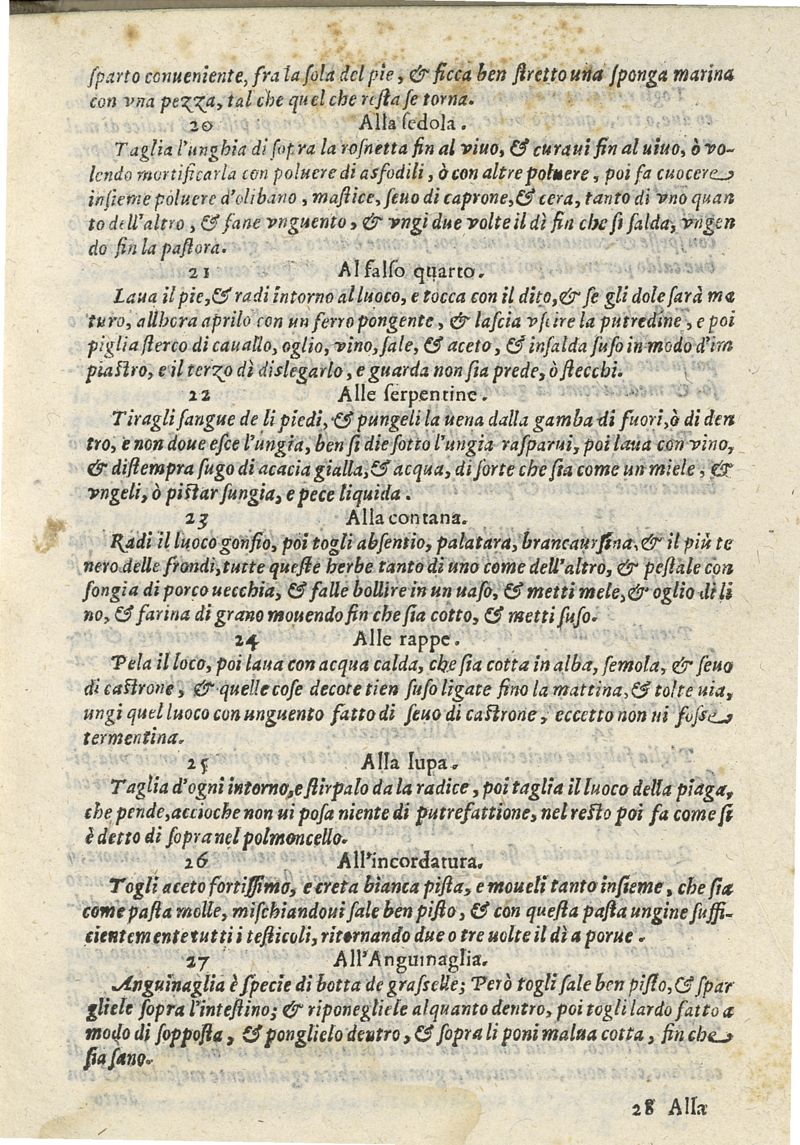 sparto conueniente, fra la sola del pie, & ficca ben stretto una sponga marina
con vna pezza, tal che quel che resta se torna.
20 Alla sedola.
Taglia l'unghia di sopra la rosnetta fin al viuo, & curaui fin al uiuo, ò vo-
lendo mortificarla con poluere di asfodili, ò con altre poluere, poi fa cuocere
insieme poluere d'olibano, mastice, seuo di caprone, & cera, tanto di vno quan
to dell'altro, & fane vnguento, & vngi due volte il dì fin che si salda, vngen
do fin la pastora.
21 Al falso quarto.
Laua il pie, & radi intorno al luoco, e tocca con il dito, & se gli dole sarà ma
turo, allhora aprilo con un ferro pongente, & lascia vscire la putredine, e poi
piglia sterco di cauallo, oglio, vino, sale, & aceto, & insalda suso in modo d'im
piastro, e il terzo dì dislegarlo, e guarda non sia prede, ò stecchi.
22 Alle serpentine.
Tiragli sangue de li piedi, & pungeli la uena dalla gamba di fuori, ò di den
tro, e non doue esce l'ungia, ben si die sotto l'ungia rasparui, poi laua con vino,
& distempra sugo di acacia gialla, & acqua, di sorte che sia come un miele, &
vngeli, ò pistar sungia, e pece liquida.
23 Alla contana.
Radi il luoco gonfio, poi togli absentio, palatara, brancaursina, & il più te
nero delle frondi, tutte queste herbe tanto di uno come dell'altro, & pestale con
songia di porco uecchia, & falle bollire in un uaso, & metti mele, & oglio di li
no, & farina di grano mouendo fin che sia cotto, & metti suso.
24 Alle rappe.
Pela il loco, poi laua con acqua calda, che sia cotta in alba, semola, & seuo
di castrone, & quelle cose decote tien suso ligate fino la mattina, & tolte uia,
ungi quel luoco con unguento fatto di seuo di castrone, eccetto non ui fosse
termentina.
25 Alla lupa.
Taglia d'ogni intorno, e stirpalo da la radice, poi taglia il luoco della piaga,
che pende, accioche non ui posa niente di putrefattione, nel resto poi fa come si
è detto di sopra nel polmoncello.
26 All'incordatura.
Togli aceto fortissimo, e creta bianca pista, e moueli tanto insieme, che sia
come pasta molle, mischiandoui sale ben pisto, & con questa pasta ungine suffi-
cientemente tutti i testicoli, ritornando due o tre uolte il dì a porue.
27 All'Anguinaglia.
Anguinaglia è specie di botta de grasselle; Però togli sale ben pisto, & spar
gliele sopra l'intestino; & riponegliele alquanto dentro, poi togli lardo fatto a
modo di sopposta, & ponglielo dentro, & sopra li poni malua cotta, fin che
sia sano.
28 Alla